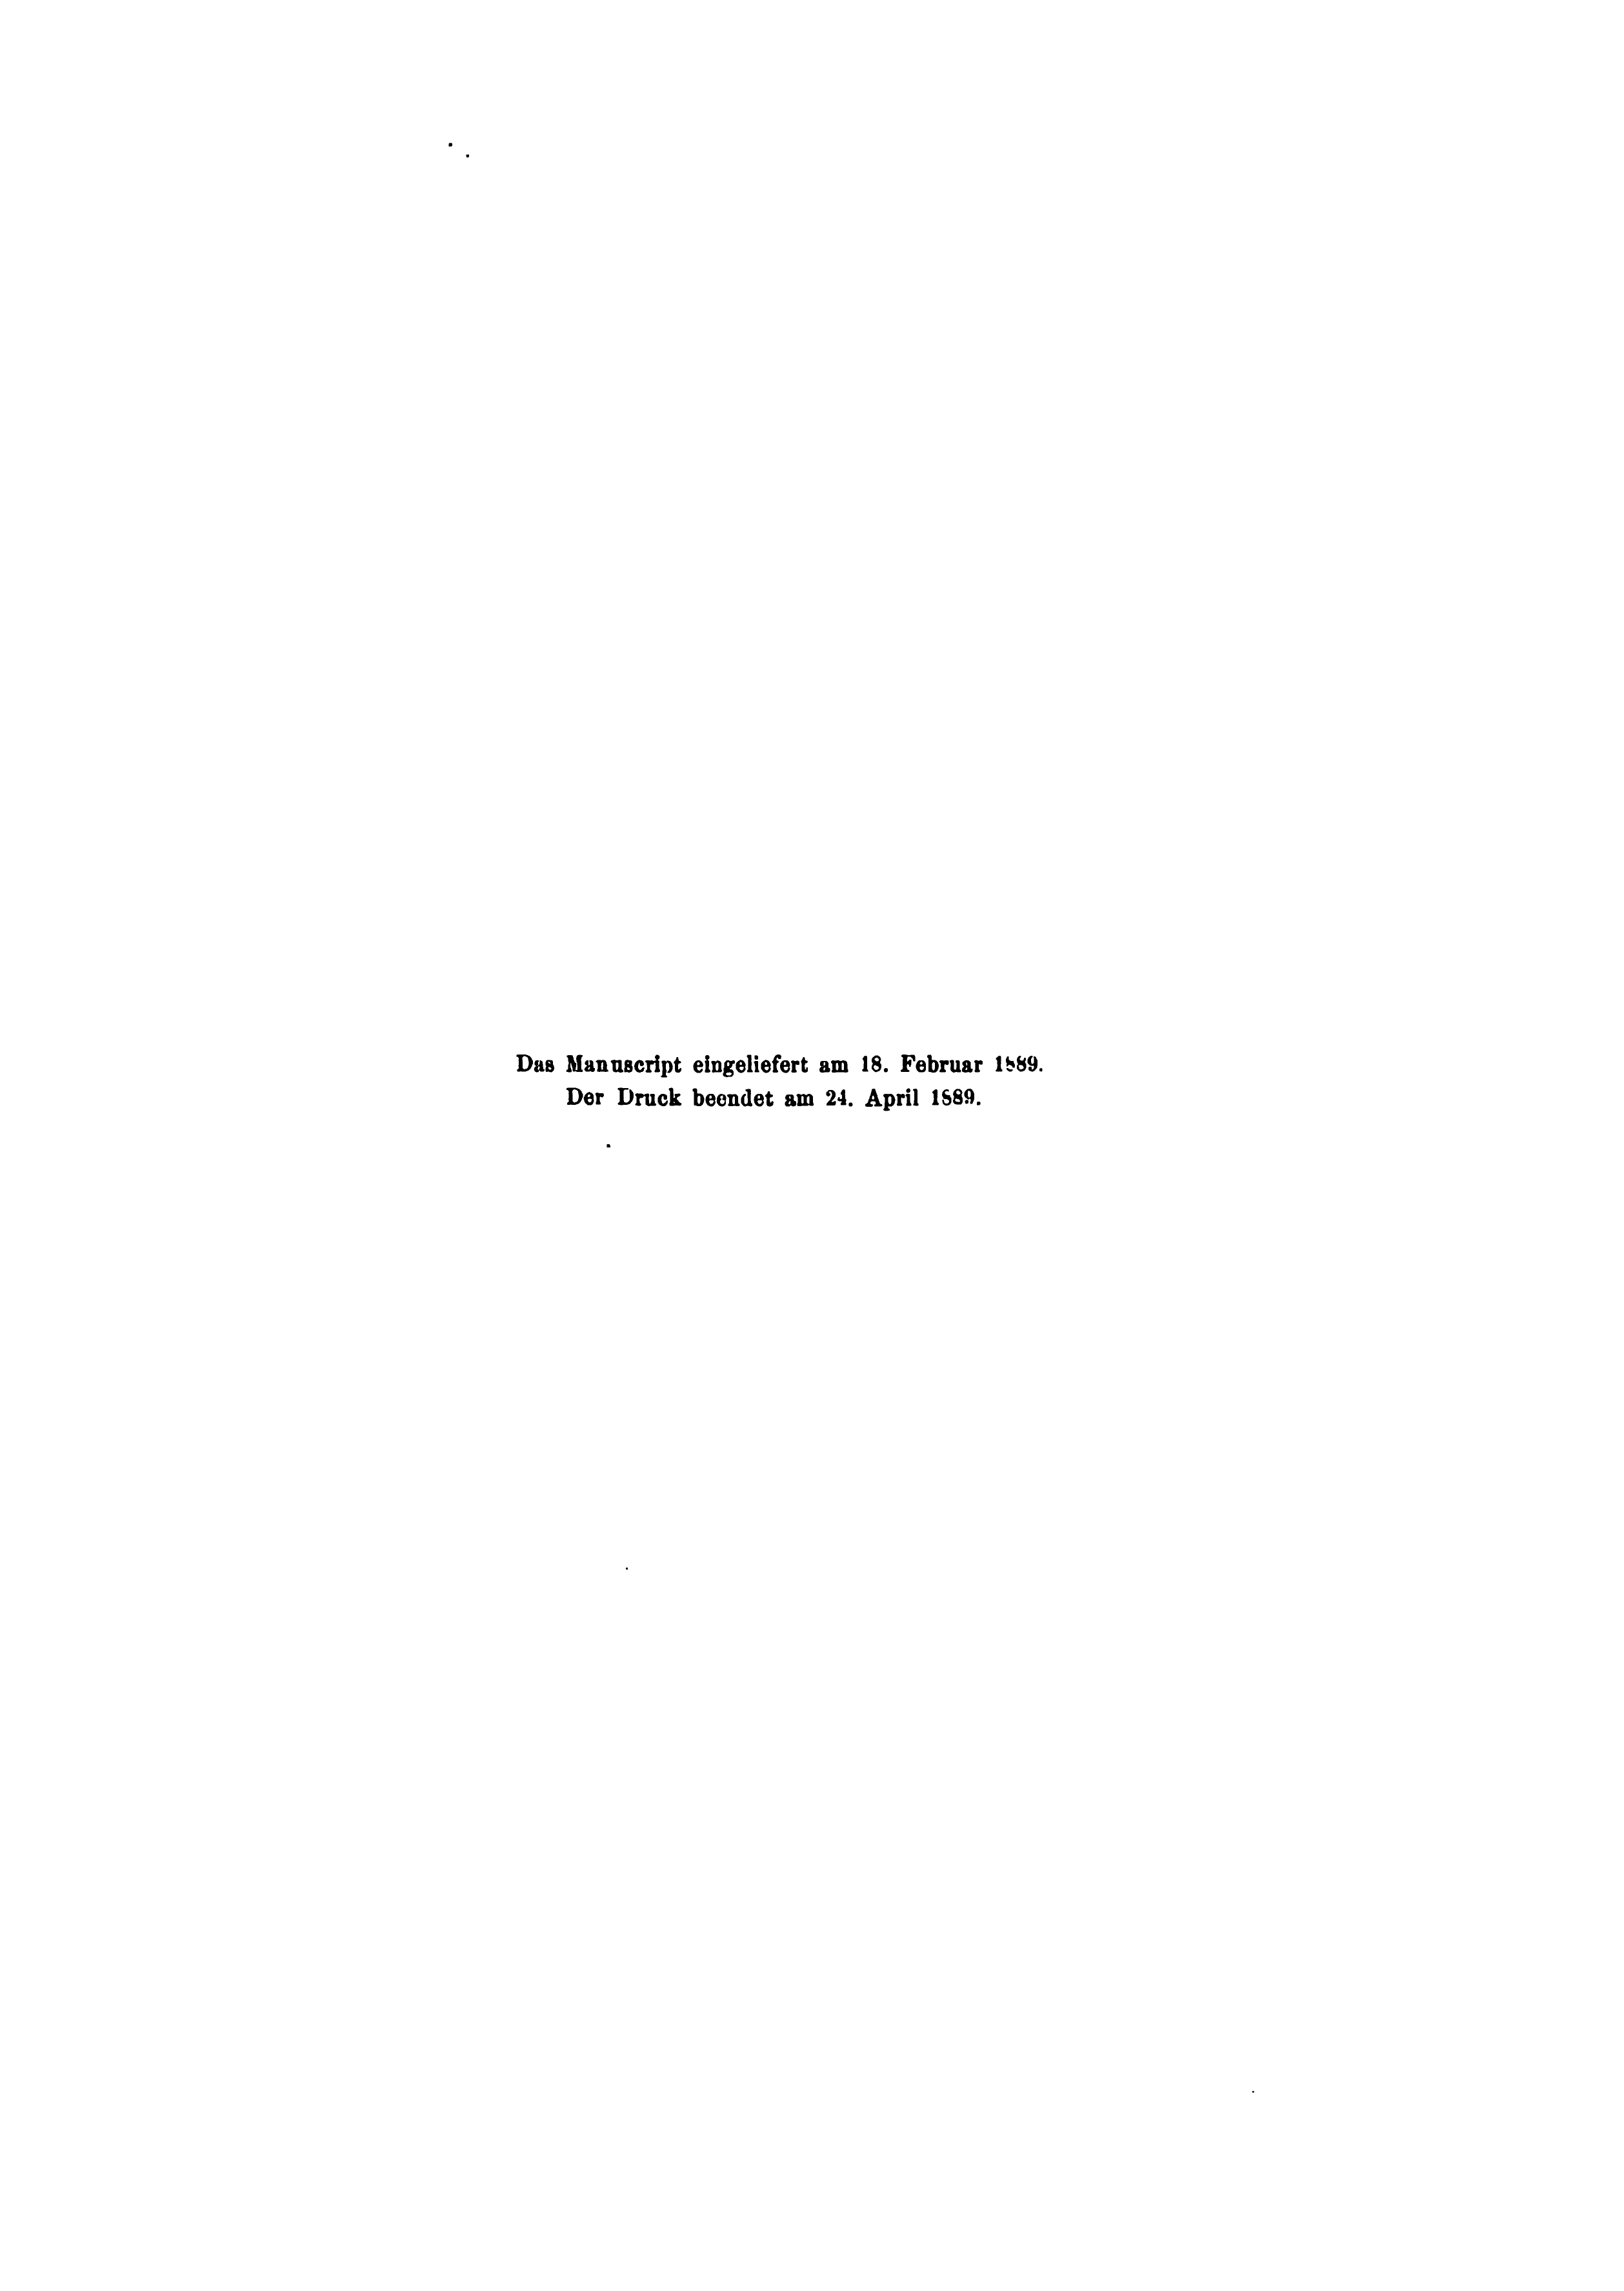 Das Manuscript eingeliefert am 18. Februar 1889.
Der Druck beendet am 24. April 1889.